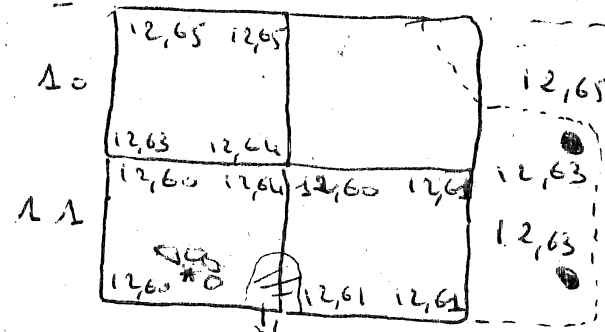 12,65 12,65
10 12,65
12,63 12,64
12,60 12,64 12,60 12,61 12,63
11
12,63
12,60 12,61 12,61